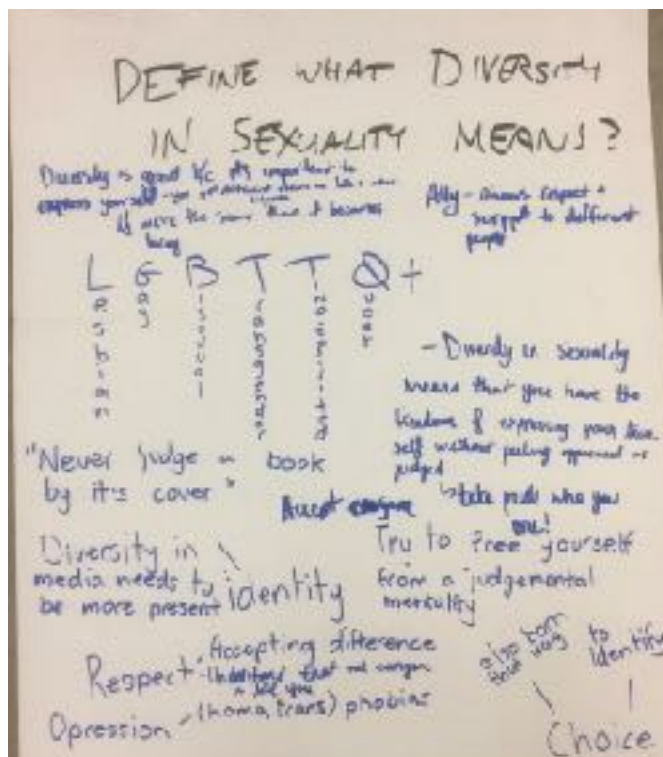 DEFINE WHAT DIVERSITY
IN SEXUALITY MEANS?
Diversity is good b/c it's important to
express yourself
if were the same then it becomes
boring
Ally - shows respect +
support to different
people
L G B T T Q +
Lesbian
Gay
Bisexual
- Diversity in sexuality
means that you have the
freedom of expressing your true
self without feeling oppressed or
judged
take pride who you
are!
"Never judge a book
by it's cover"
Accept
Diversity in
media needs to
be more present
identity
Try to free yourself
from a judgemental
mentality
Respect
Accepting difference
Understand that not
is like you
Opression
(homo, trans) phobias
also born
that way
to
identify
Choice